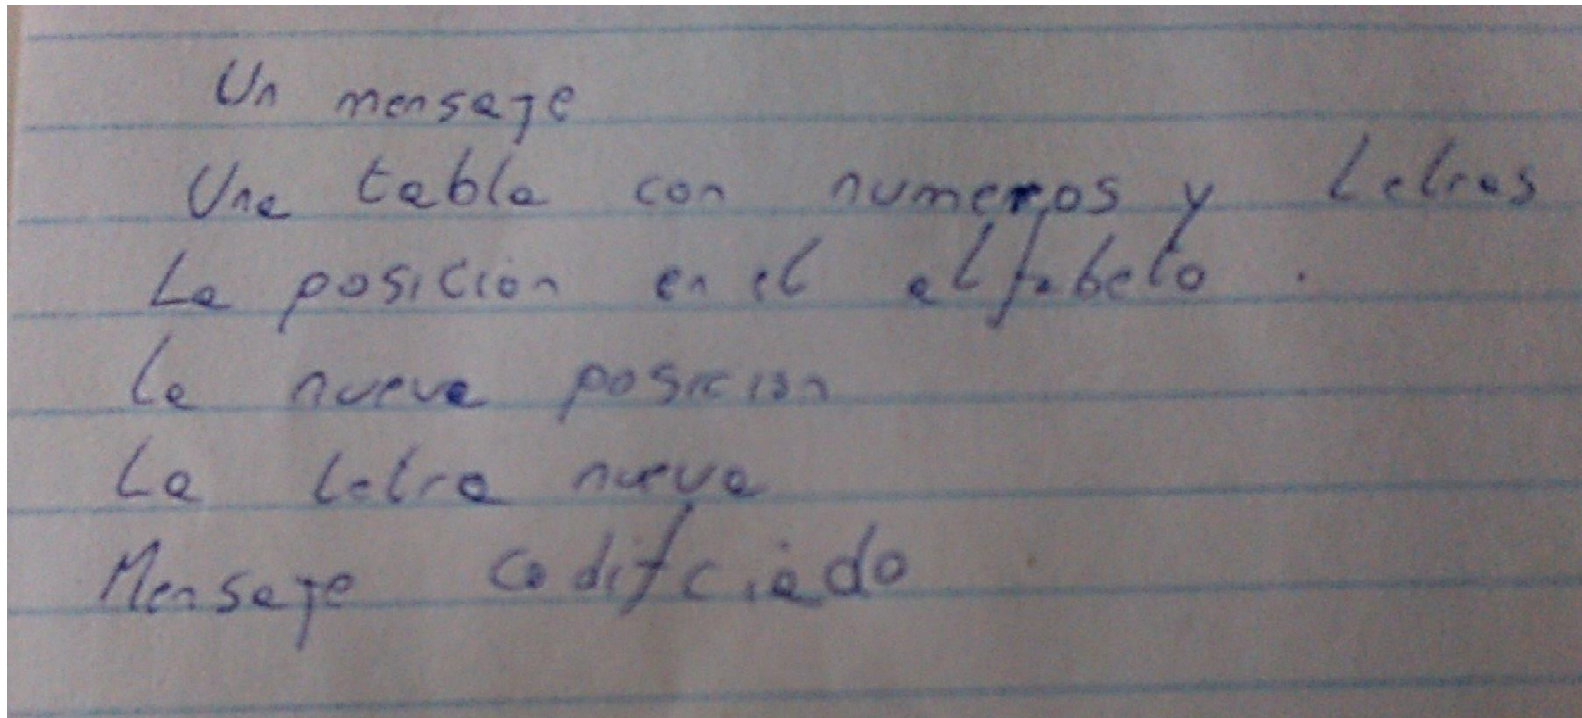 Un mensaje
Una tabla con numeros y Letras
La posición en el alfabeto.
La nueva posicion
La Letra nueva
Mensaje codifciado